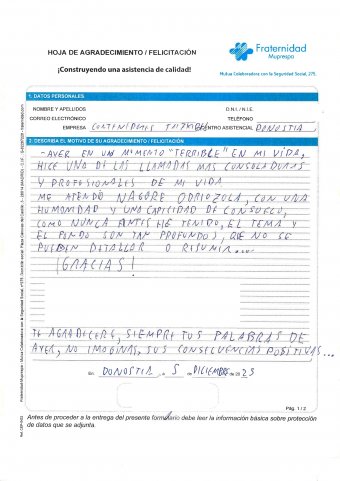 HOJA DE AGRADECIMIENTO / FELICITACIÓN
Fraternidad
Muprespa
¡Construyendo una asistencia de calidad!
Mutua Colaboradora con la Seguridad Social, 275.
1. DATOS PERSONALES
NOMBRE Y APELLIDOS
D.N.I. / N.I.E.
CORREO ELECTRÓNICO
TELÉFONO
EMPRESA CONTENIDOS CENTRO ASISTENCIAL DONOSTIA
2. DESCRIBA EL MOTIVO DE SU AGRADECIMIENTO / FELICITACIÓN
- AYER EN UN MOMENTO "TERRIBLE" EN MI VIDA,
HICE UNO DE LAS LLAMADAS MAS CONSOLADORAS
Y PROFESIONALES DE MI VIDA
ME ATENDIO NAGORE ODRIOZOLA, CON UNA
HUMANIDAD Y UNA CAPACIDAD DE CONSUELO,
COMO NUNCA ANTES HE TENIDO, EL TEMA Y
EL FONDO SON TAN PROFUNDOS, QUE NO SE
PUEDEN DETALLAR O RESUMIR....
¡GRACIAS!
TE AGRADECERE, SIEMPRE TUS PALABRAS DE
AYER, NO IMAGINAS, SUS CONSECUENCIAS POSITIVAS...
En DONOSTIA a 5 de DICIEMBRE de 2023
Pág. 1 / 2
Antes de proceder a la entrega del presente formulario debe leer la información básica sobre protección
de datos que se adjunta.